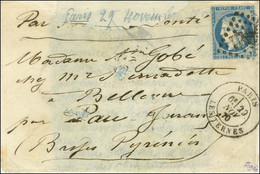 Paris 29 Novembre
Par Ballon Monté
Madame Gobé
chez Mr Bernadotte
à Bellevue
par Pau Jurançon
Basses Pyrénées
PARIS
29
NOV
70
LES TERNES